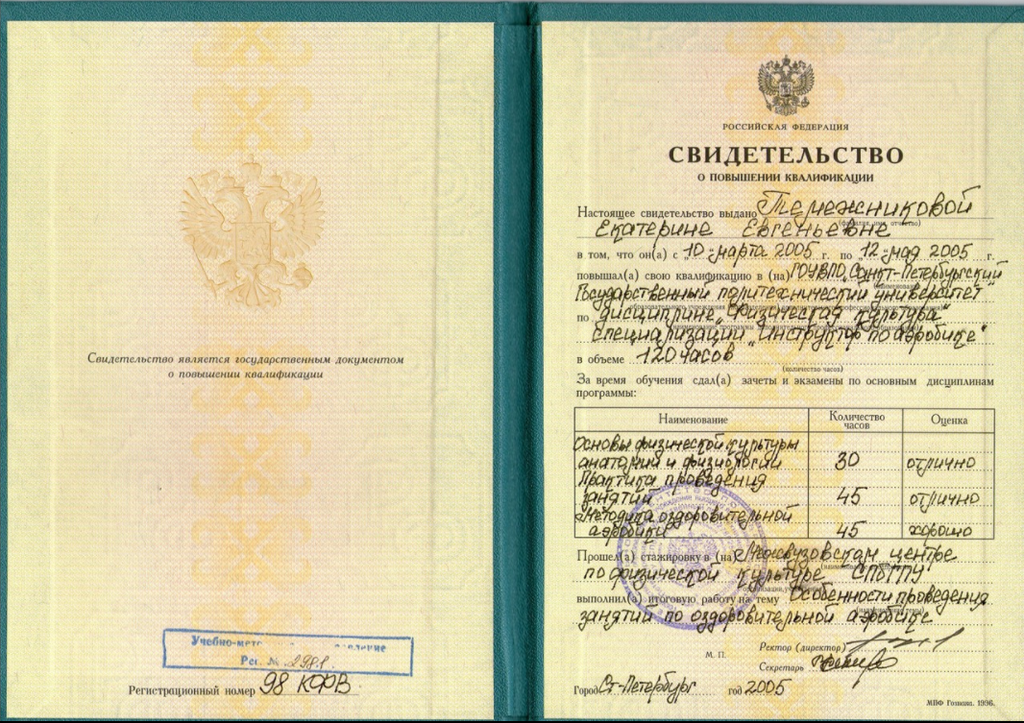 Свидетельство является государственным документом
о повышении квалификации
Учебно-мет
Рег. № 2981
Регистрационный номер 98 КФВ
РОССИЙСКАЯ ФЕДЕРАЦИЯ
СВИДЕТЕЛЬСТВО
О ПОВЫШЕНИИ КВАЛИФИКАЦИИ
Настоящее свидетельство выдано
Екатерине Евгеньевне
в том, что он(а) с „10“ марта 2005 г. по „12“ мая 2005 г.
повышал(а) свою квалификацию в (на) ГОУВПО „Санкт-Петербургский
Государственный политехнический университет“
по дисциплине „Физическая культура“
специализации „инструктор по аэробике“
в объеме 120 часов
(количество часов)
За время обучения сдал(а) зачеты и экзамены по основным дисциплинам
программы:
Наименование Количество часов Оценка
Основы физической культуры
анатомии и физиологии 30 отлично
Практика проведения
занятий 45 отлично
Методика оздоровительной
аэробики 45 хорошо
Прошел(а) стажировку в (на) Межвузовском центре
по физической культуре СПбГПУ
выполнил(а) итоговую работу на тему Особенности проведения
занятий по оздоровительной аэробике
Ректор (директор)
М. П.
Секретарь
Город Ст-Петербург год 2005
МПФ Гознака. 1996.